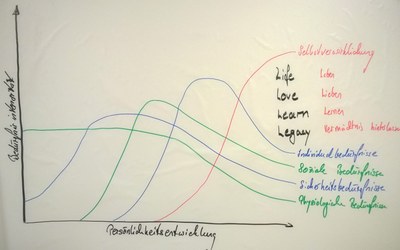 Selbstverwirklichung
Life Leben
Love Lieben
Learn Lernen
Legacy Vermächtnis hinterlassen
Individualbedürfnisse
Soziale Bedürfnisse
Sicherheitsbedürfnisse
Physiologische Bedürfnisse
Bedürfnisintensität
Persönlichkeitsentwicklung